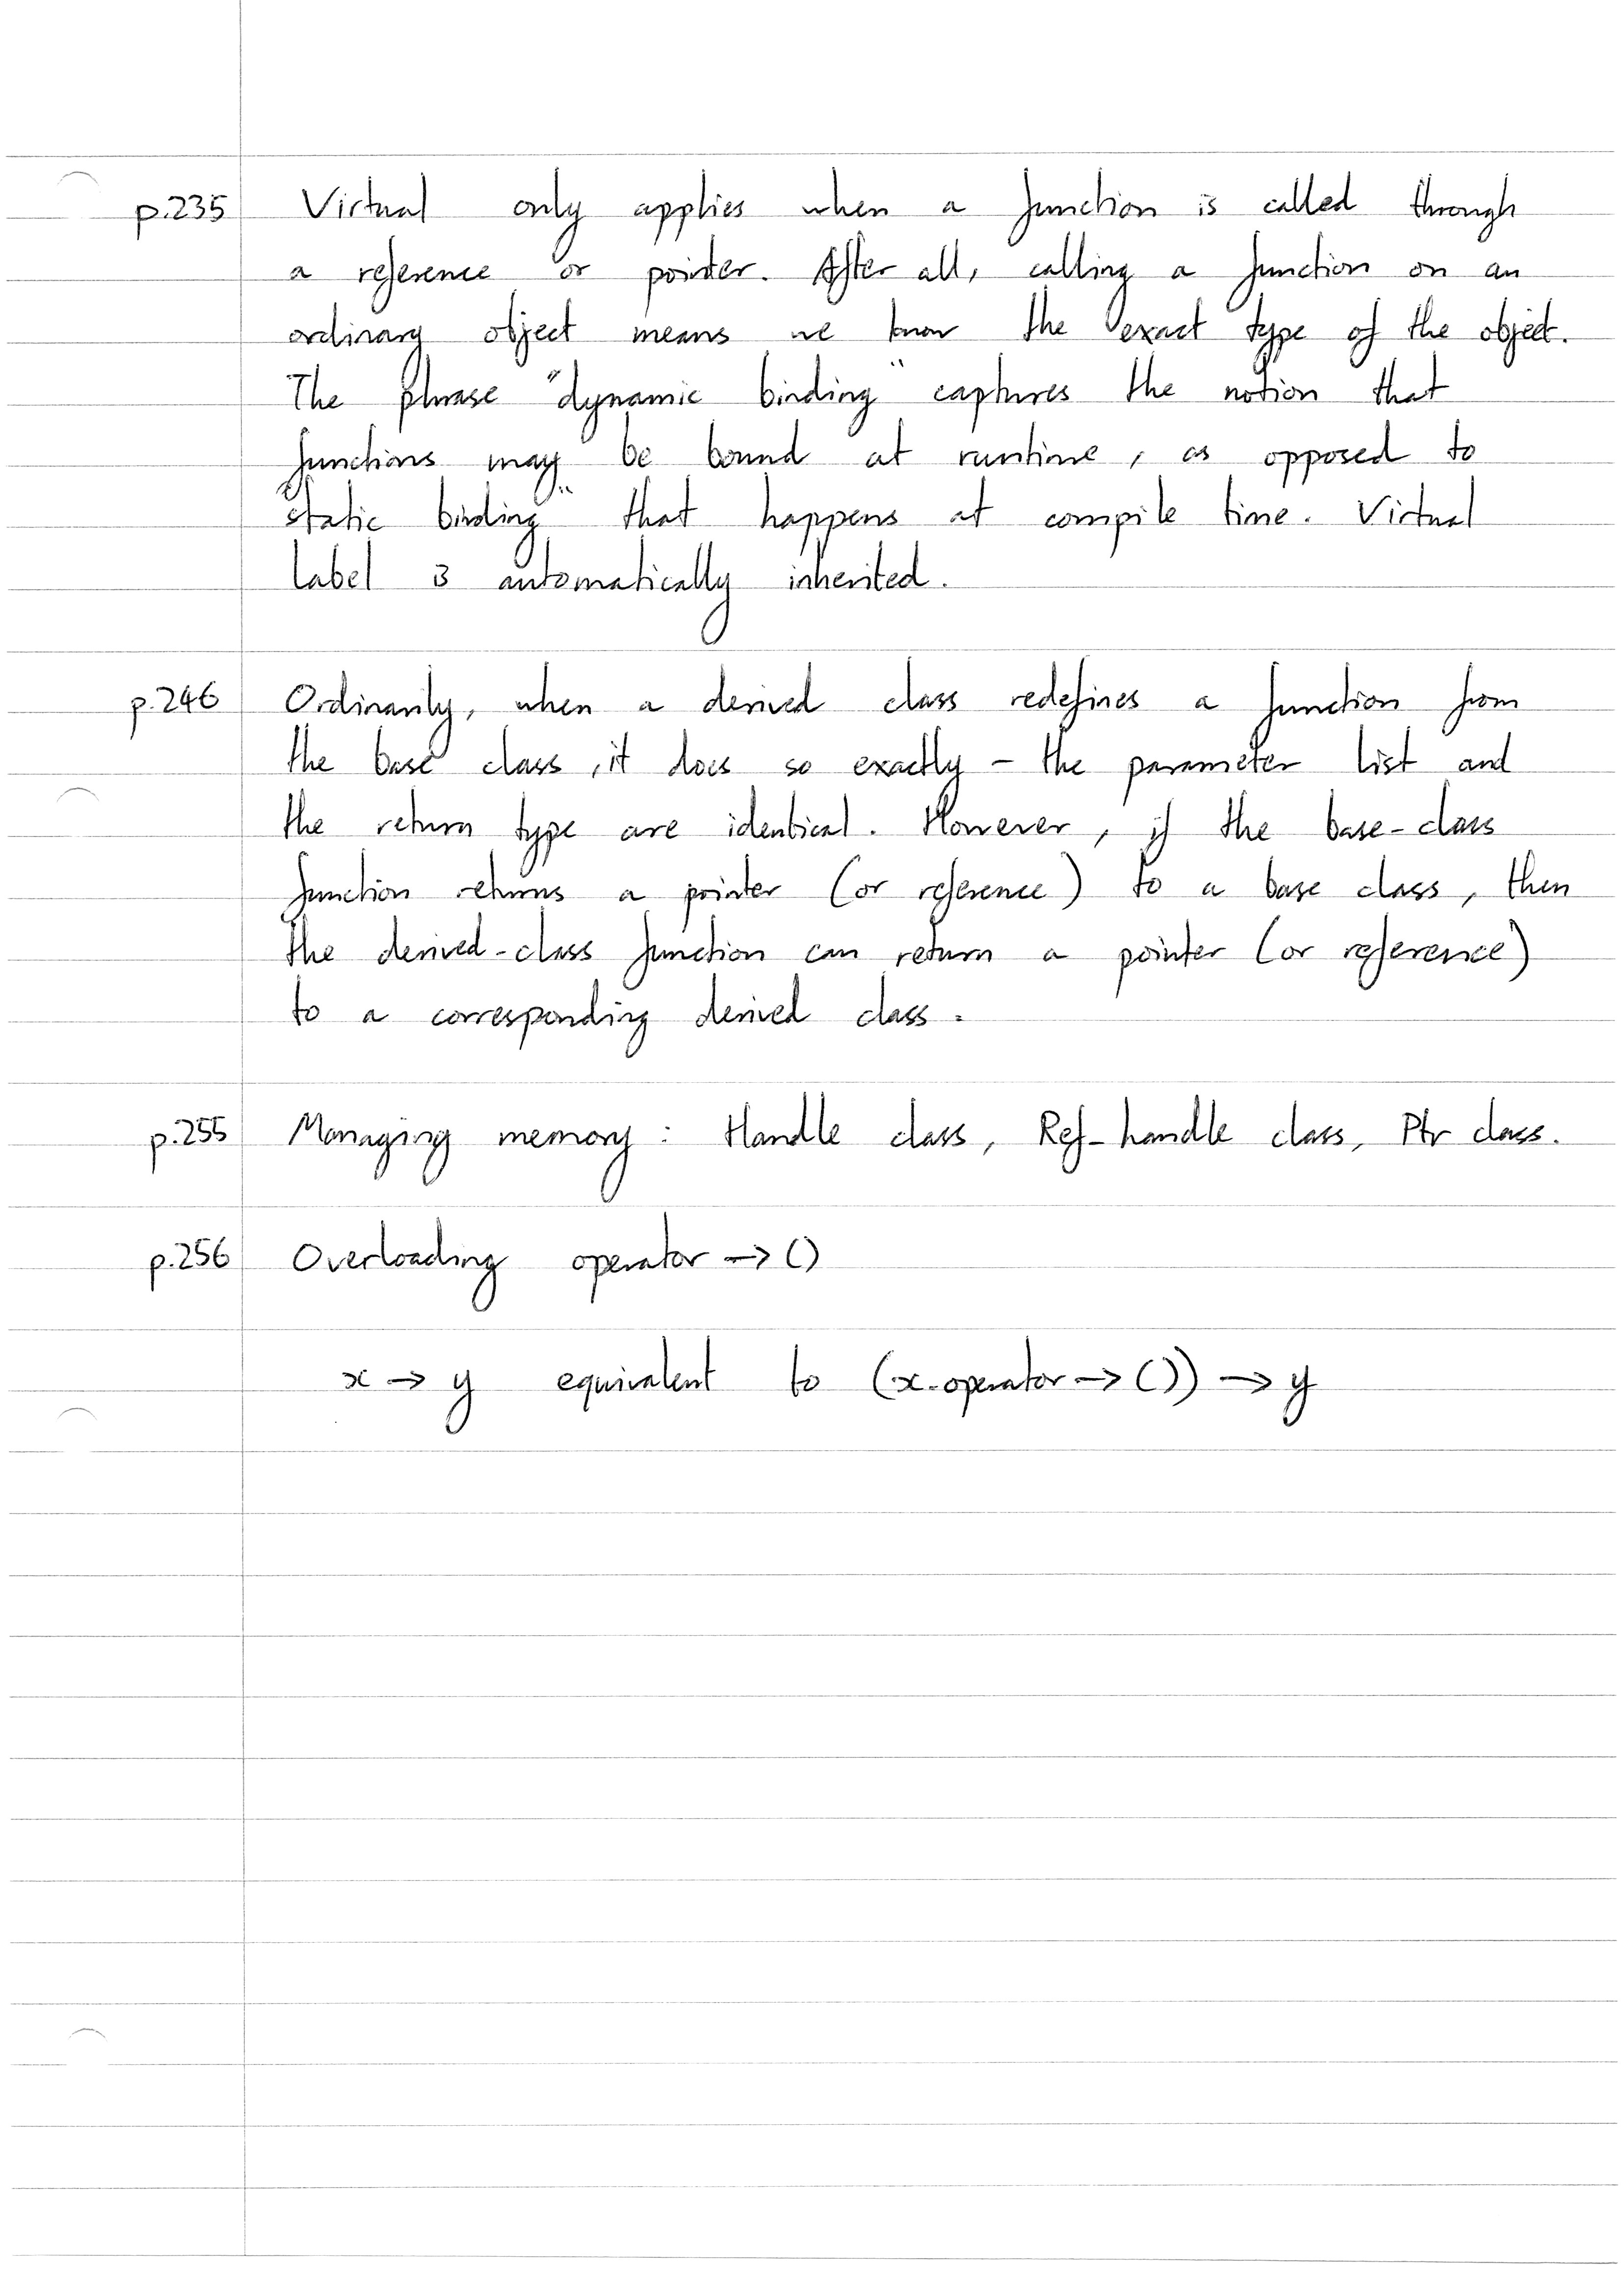 p.235 Virtual only applies when a function is called through
a reference or pointer. After all, calling a function on an
ordinary object means we know the exact type of the object.
The phrase "dynamic binding" captures the notion that
functions may be bound at runtime, as opposed to
"static binding" that happens at compile time. Virtual
label is automatically inherited.
p.246 Ordinarily, when a derived class redefines a function from
the base class, it does so exactly - the parameter list and
the return type are identical. However, if the base-class
function returns a pointer (or reference) to a base class, then
the derived-class function can return a pointer (or reference)
to a corresponding derived class.
p.255 Managing memory: Handle class, Ref-handle class, Ptr class.
p.256 Overloading operator->()
x -> y equivalent to (x.operator->()) -> y